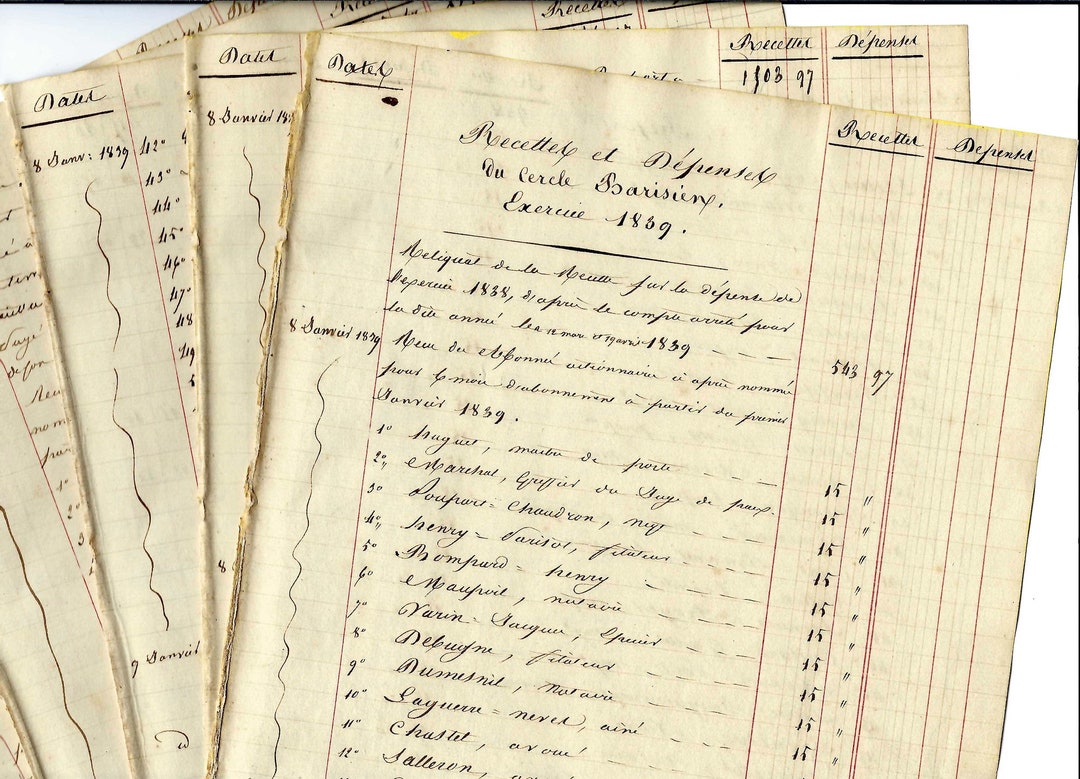 Recettes
Dates
Dates
Dates
Recettes
Dépenses
1103 97
Recettes
Dépenses
8 Janv: 1839
42°
43°
44°
45°
46°
47°
48
49
8 Janvier
9 Janvier
Recettes et Dépenses
du Cercle Parisien.
Exercice 1839.
Reliquat de la Recette sur la dépense de
l'exercice 1838, d'après le compte arrêté pour
la dite année les 12 mars et 19 avril 1839
543 97
8 Janvier 1839
Reçu des abonnés actionnaires ci après nommés
pour 6 mois d'abonnement à partir du premier
Janvier 1839.
1° huguet, maître de poste
15 "
2° Maréchal, Greffier du Juge de paix.
15 "
3° Poupart = Chaudron, negt
15 "
4° henry = Parisot, filateur
15 "
5° Pompard = henry
15 "
6° Maupoil, notaire
15 "
7° Varin = Jacques, Epicier
15 "
8° Debugne, filateur
15 "
9° Dumesnil, notaire
15 "
10° Laguerre = nevel, ainé
15 "
11° Chastel, avoué
12° Salleron,